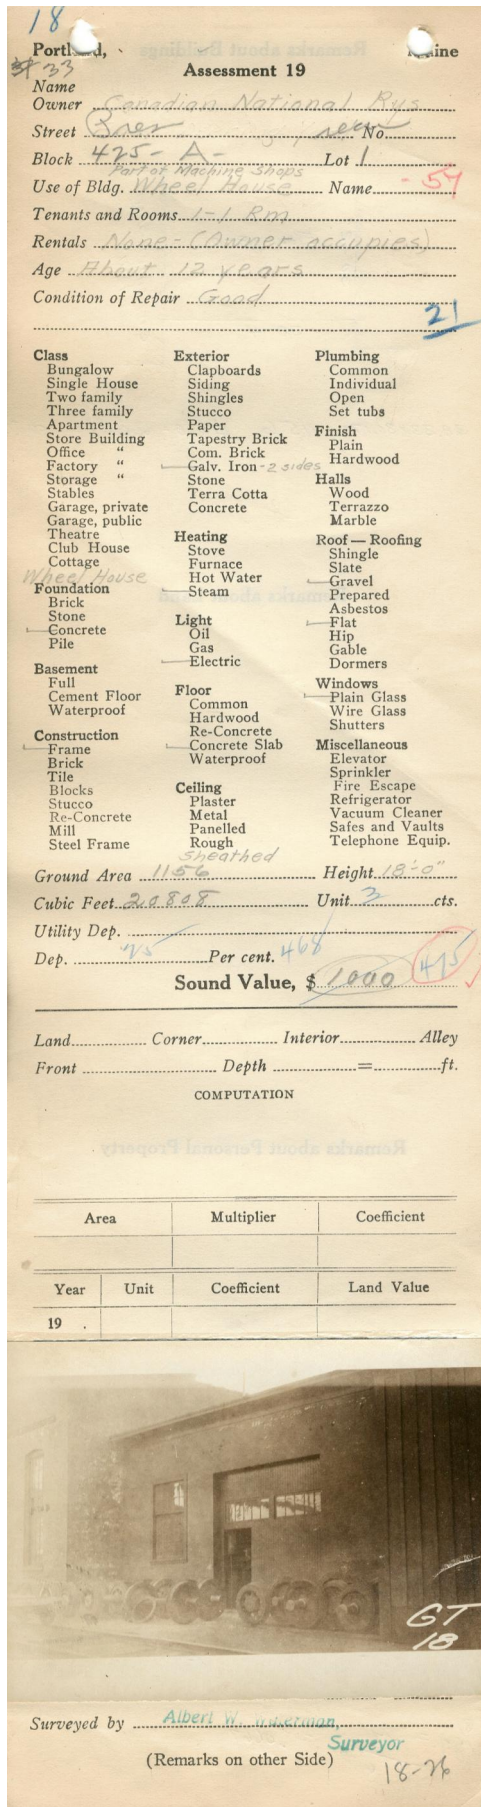 18
Portland, Maine
33
Assessment 19
Name
Owner Canadian National Rys
Street No.
Block 425-A- Lot 1
Part of Machine Shops
Use of Bldg. Wheel House Name -54
Tenants and Rooms 1-1 Rm
Rentals None-(Owner occupies)
Age About 12 years
Condition of Repair Good
21
Class
Bungalow
Single House
Two family
Three family
Apartment
Store Building
Office "
Factory "
Storage "
Stables
Garage, private
Garage, public
Theatre
Club House
Cottage
Wheel House
Foundation
Brick
Stone
Concrete
Pile
Basement
Full
Cement Floor
Waterproof
Construction
Frame
Brick
Tile
Blocks
Stucco
Re-Concrete
Mill
Steel Frame
Exterior
Clapboards
Siding
Shingles
Stucco
Paper
Tapestry Brick
Com. Brick
Galv. Iron - 2 sides
Stone
Terra Cotta
Concrete
Heating
Stove
Furnace
Hot Water
Steam
Light
Oil
Gas
Electric
Floor
Common
Hardwood
Re-Concrete
Concrete Slab
Waterproof
Ceiling
Plaster
Metal
Panelled
Rough
Sheathed
Plumbing
Common
Individual
Open
Set tubs
Finish
Plain
Hardwood
Halls
Wood
Terrazzo
Marble
Roof — Roofing
Shingle
Slate
Gravel
Prepared
Asbestos
Flat
Hip
Gable
Dormers
Windows
Plain Glass
Wire Glass
Shutters
Miscellaneous
Elevator
Sprinkler
Fire Escape
Refrigerator
Vacuum Cleaner
Safes and Vaults
Telephone Equip.
Ground Area 1156 Height 18'-0"
Cubic Feet 20808 Unit 3 cts.
Utility Dep.
Dep. 25 Per cent. 468
Sound Value, $ 1000 475
Land Corner Interior Alley
Front Depth = ft.
COMPUTATION
Area Multiplier Coefficient
Year Unit Coefficient Land Value
19 .
GT
18
Surveyed by Albert W.
Surveyor
(Remarks on other Side)
18-26